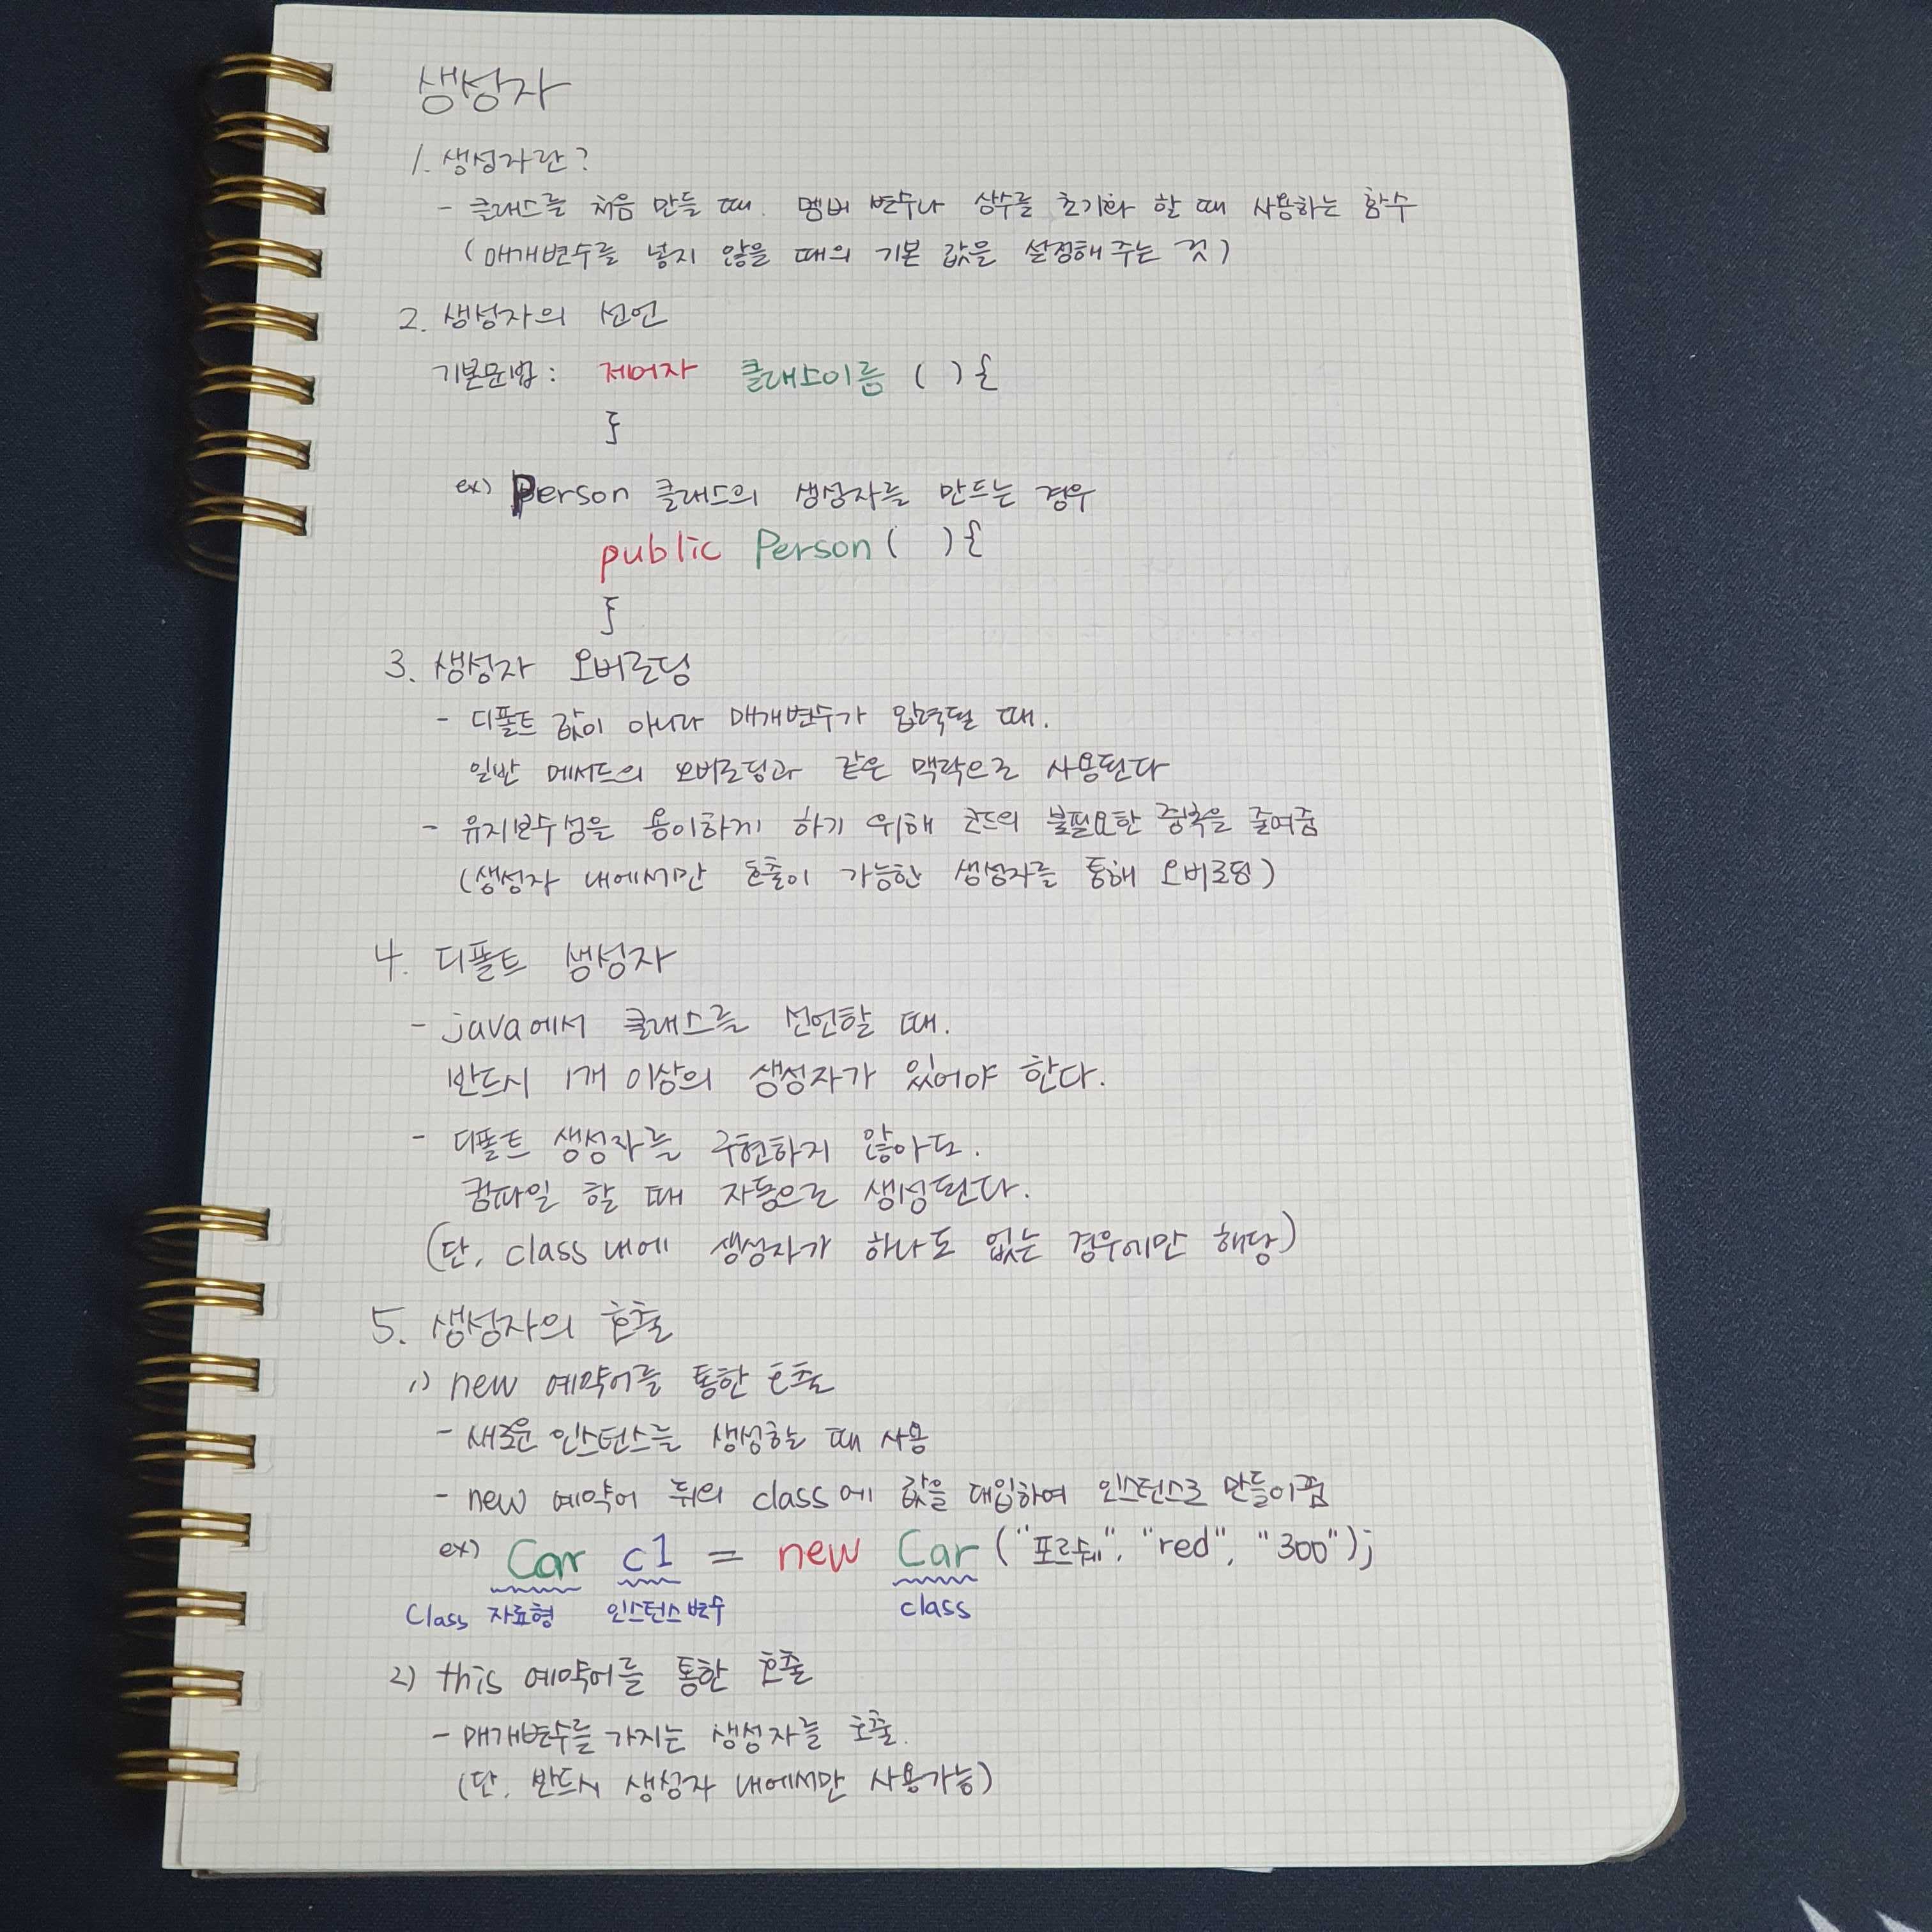 생성자
1. 생성자란?
- 클래스를 처음 만들 때. 멤버 변수나 상수를 초기화 할 때 사용하는 함수
(매개변수를 넣지 않을 때의 기본 값을 설정해 주는 것)
2. 생성자의 선언
기본문법 : 제어자 클래스이름 ( ) {
}
ex) Person 클래스의 생성자를 만드는 경우
public Person ( ) {
}
3. 생성자 오버로딩
- 디폴트 값이 아니라 매개변수가 입력될 때.
일반 메서드의 오버로딩과 같은 맥락으로 사용된다
- 유지보수성을 용이하게 하기 위해 코드의 불필요한 중복을 줄여줌
(생성자 내에서만 호출이 가능한 생성자를 통해 오버로딩)
4. 디폴트 생성자
- java에서 클래스를 선언할 때.
반드시 1개 이상의 생성자가 있어야 한다.
- 디폴트 생성자를 구현하지 않아도.
컴파일 할 때 자동으로 생성된다.
(단, class 내에 생성자가 하나도 없는 경우에만 해당)
5. 생성자의 호출
1) new 예약어를 통한 호출
- 새로운 인스턴스를 생성할 때 사용
- new 예약어 뒤의 class에 값을 대입하여 인스턴스로 만들어줌
ex) Car c1 = new Car ("포르쉐", "red", "300");
Class 자료형 인스턴스 변수 class
2) this 예약어를 통한 호출
- 매개변수를 가지는 생성자를 호출.
(단, 반드시 생성자 내에서만 사용가능)